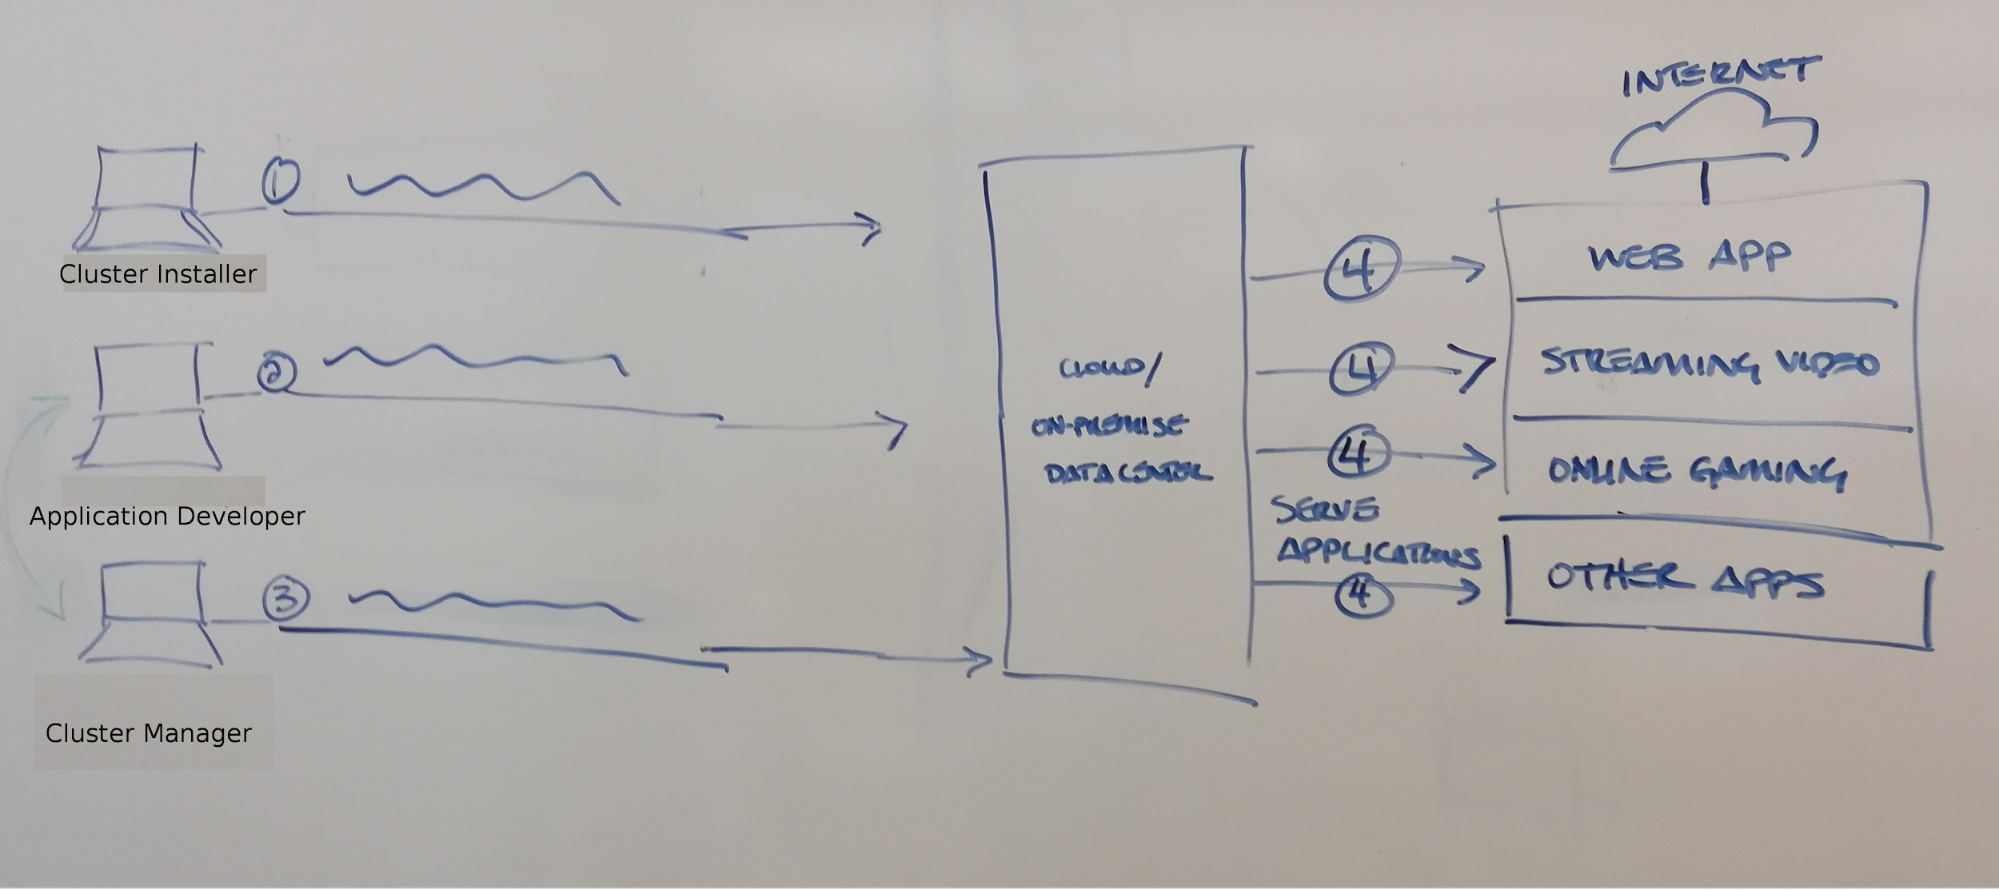 INTERNET
1
Cluster Installer
2
Application Developer
3
Cluster Manager
CLOUD/
ON-PREMISE
DATACENTER
4
4
4
SERVE
APPLICATIONS
4
WEB APP
STREAMING VIDEO
ONLINE GAMING
OTHER APPS